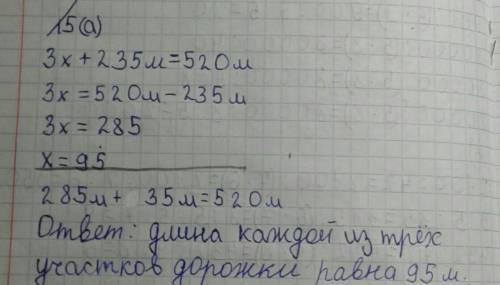 15(а)
3x + 235м = 520м
3x = 520м - 235м
3x = 285
x = 95
285м + 35м = 520м
Ответ: длина каждой из трёх
участков дорожки равна 95 м.